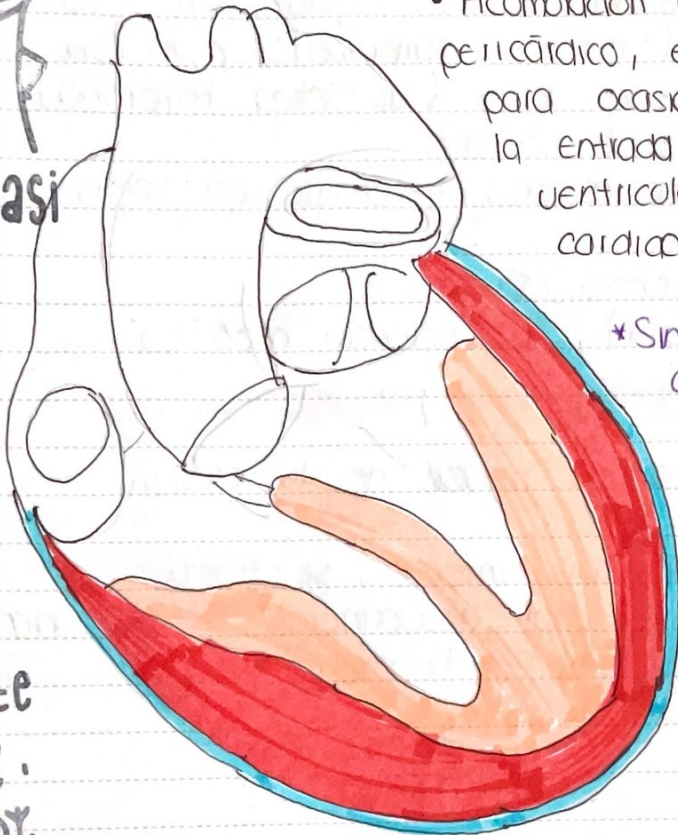 Acumulación
pericárdico, e
para ocasi
la entrada
ventricul
cardiac
*Sin
asi
te